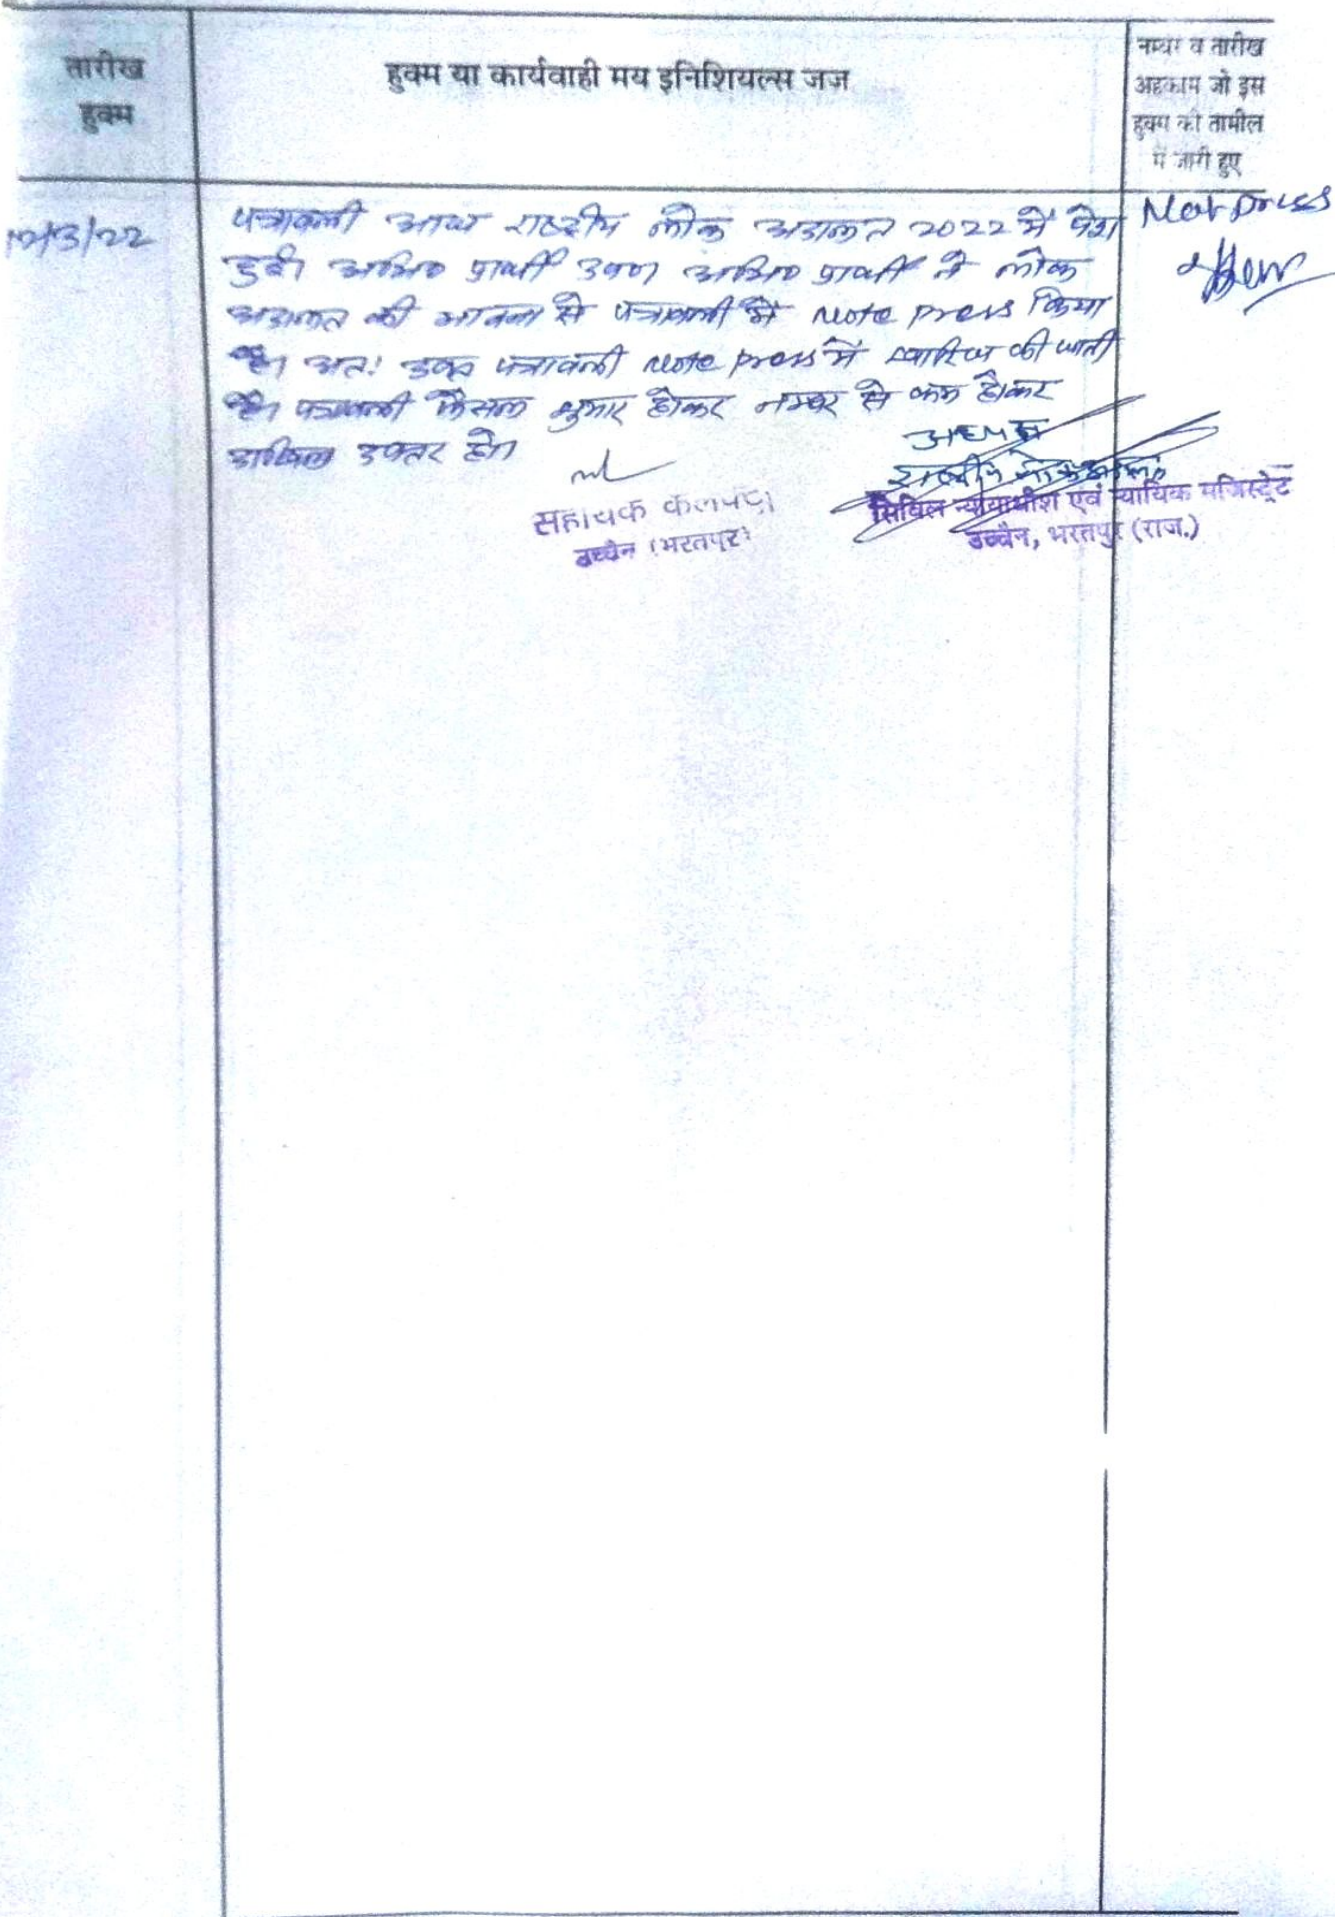 तारीख
हुक्म
हुक्म या कार्यवाही मय इनिशियल्स जज
नम्बर व तारीख
अहकाम जो इस
हुक्म की तामील
में जारी हुए
12/3/22
पत्रावली आज राष्ट्रीय लोक अदालत 2022 में पेश
हुई। अभि० प्रार्थी उप० अभि० प्रार्थी ने लोक
अदालत की भावना से पत्रावली में Note press किया
है। अतः उक्त पत्रावली Note press में खारिज की जाती
है। पत्रावली फैसल शुमार होकर नम्बर से कम होकर
दाखिल दफ्तर हो।
Not press
अध्यक्ष
राष्ट्रीय लोक अदालत
सहायक कलक्टर
उच्चैन (भरतपुर)
सिविल न्यायाधीश एवं न्यायिक मजिस्ट्रेट
उच्चैन, भरतपुर (राज.)